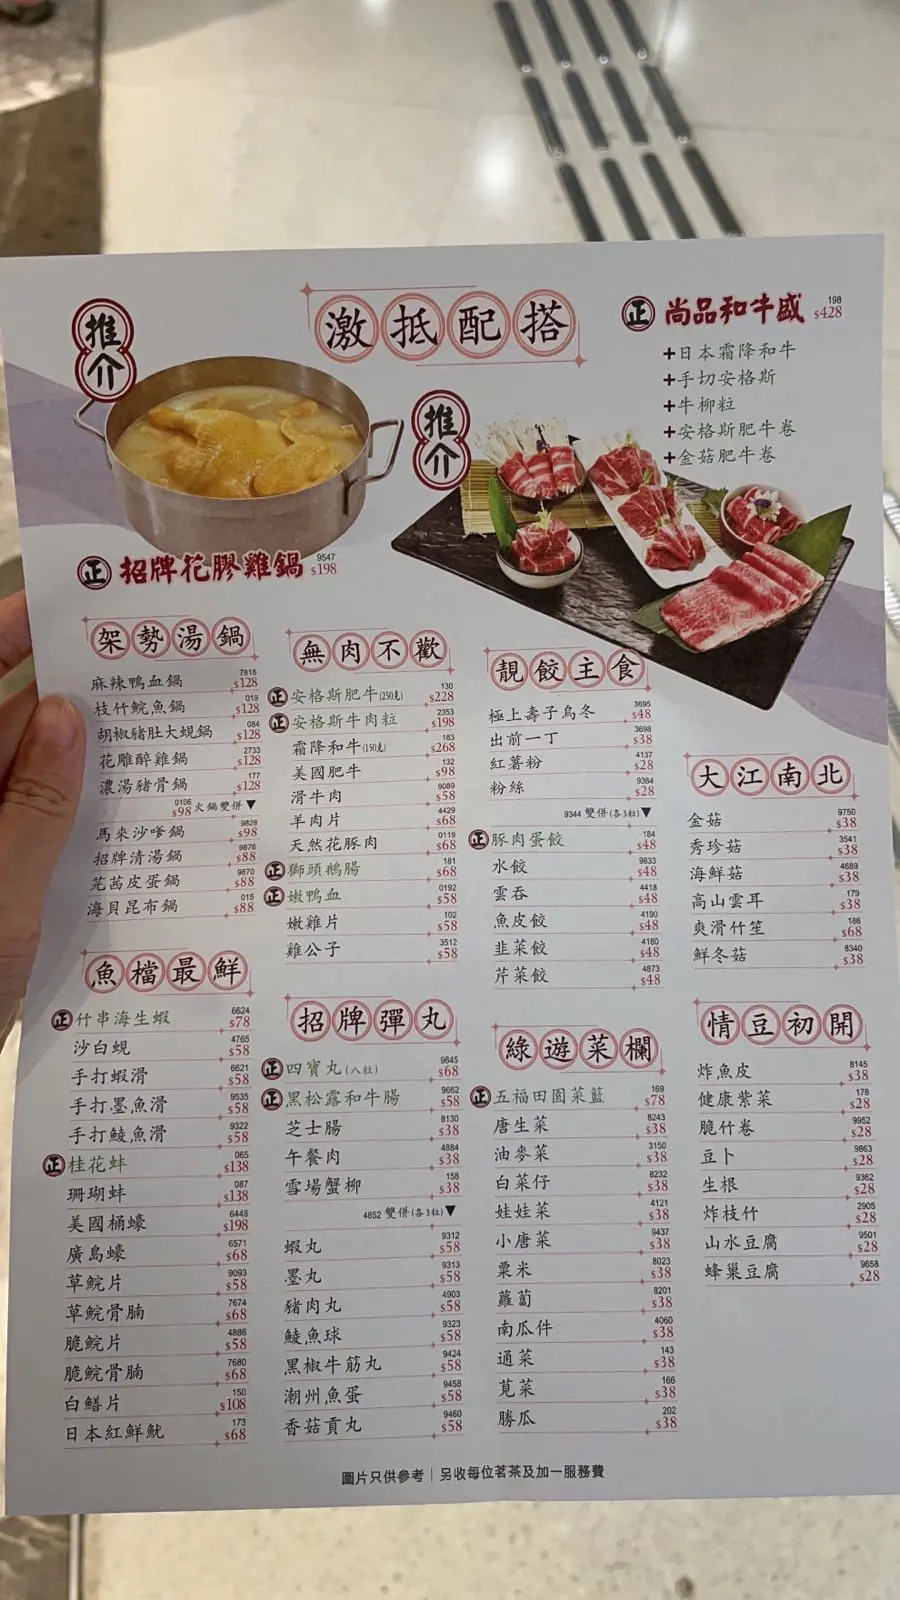 推介
激抵配搭
推介
正 尚品和牛盛 198 $428
+日本霜降和牛
+手切安格斯
+牛柳粒
+安格斯肥牛卷
+金菇肥牛卷
正 招牌花膠雞鍋 9547 $198
架勢湯鍋
麻辣鴨血鍋 7818 $128
枝竹鯇魚鍋 019 $128
胡椒豬肚大蜆鍋 084 $128
花雕醉雞鍋 2733 $128
濃湯豬骨鍋 177 $128
0106 $98 火鍋雙併▼
馬來沙嗲鍋 9828 $98
招牌清湯鍋 9876 $88
芫茜皮蛋鍋 9870 $88
海貝昆布鍋 015 $88
魚檔最鮮
正 竹串海生蝦 6624 $78
沙白蜆 4765 $58
手打蝦滑 6621 $58
手打墨魚滑 9535 $58
手打鯪魚滑 9322 $58
正 桂花蚌 065 $138
珊瑚蚌 087 $138
美國桶蠔 6448 $198
廣島蠔 6571 $68
草鯇片 9093 $58
草鯇骨腩 7674 $68
脆鯇片 4886 $58
脆鯇骨腩 7680 $68
白鱔片 150 $108
日本紅鮮魷 173 $68
無肉不歡
正 安格斯肥牛(250克) 130 $228
正 安格斯牛肉粒 2353 $198
霜降和牛(150克) 183 $268
美國肥牛 132 $98
滑牛肉 9089 $58
羊肉片 4429 $68
天然花豚肉 0119 $68
正 獅頭鵝腸 181 $68
正 嫩鴨血 0192 $58
嫩雞片 102 $58
雞公子 3512 $58
招牌彈丸
正 四寶丸(八粒) 9845 $68
正 黑松露和牛腸 9662 $58
芝士腸 8130 $38
午餐肉 4884 $38
雪場蟹柳 158 $38
4852 雙併(各3粒)▼
蝦丸 9312 $58
墨丸 9313 $58
豬肉丸 4903 $58
鯪魚球 9323 $58
黑椒牛筋丸 9424 $58
潮州魚蛋 9458 $58
香菇貢丸 9460 $58
靚餃主食
極上壽子烏冬 3695 $48
出前一丁 3698 $38
紅薯粉 4137 $28
粉絲 9384 $28
9344 雙併(各3粒)▼
正 豚肉蛋餃 184 $48
水餃 9633 $48
雲吞 4418 $48
魚皮餃 4190 $48
韭菜餃 4180 $48
芹菜餃 4873 $48
綠遊菜欄
正 五福田園菜籃 169 $78
唐生菜 8243 $38
油麥菜 3150 $38
白菜仔 8232 $38
娃娃菜 4121 $38
小唐菜 9437 $38
粟米 8023 $38
蘿蔔 8201 $38
南瓜件 4060 $38
通菜 143 $38
莧菜 166 $38
勝瓜 202 $38
大江南北
金菇 9750 $38
秀珍菇 3541 $38
海鮮菇 4689 $38
高山雲耳 179 $38
爽滑竹笙 186 $68
鮮冬菇 8340 $38
情豆初開
炸魚皮 8145 $38
健康紫菜 178 $28
脆竹卷 9952 $28
豆卜 9863 $28
生根 9362 $28
炸枝竹 2905 $28
山水豆腐 9501 $28
蜂巢豆腐 9658 $28
圖片只供參考｜另收每位茗茶及加一服務費